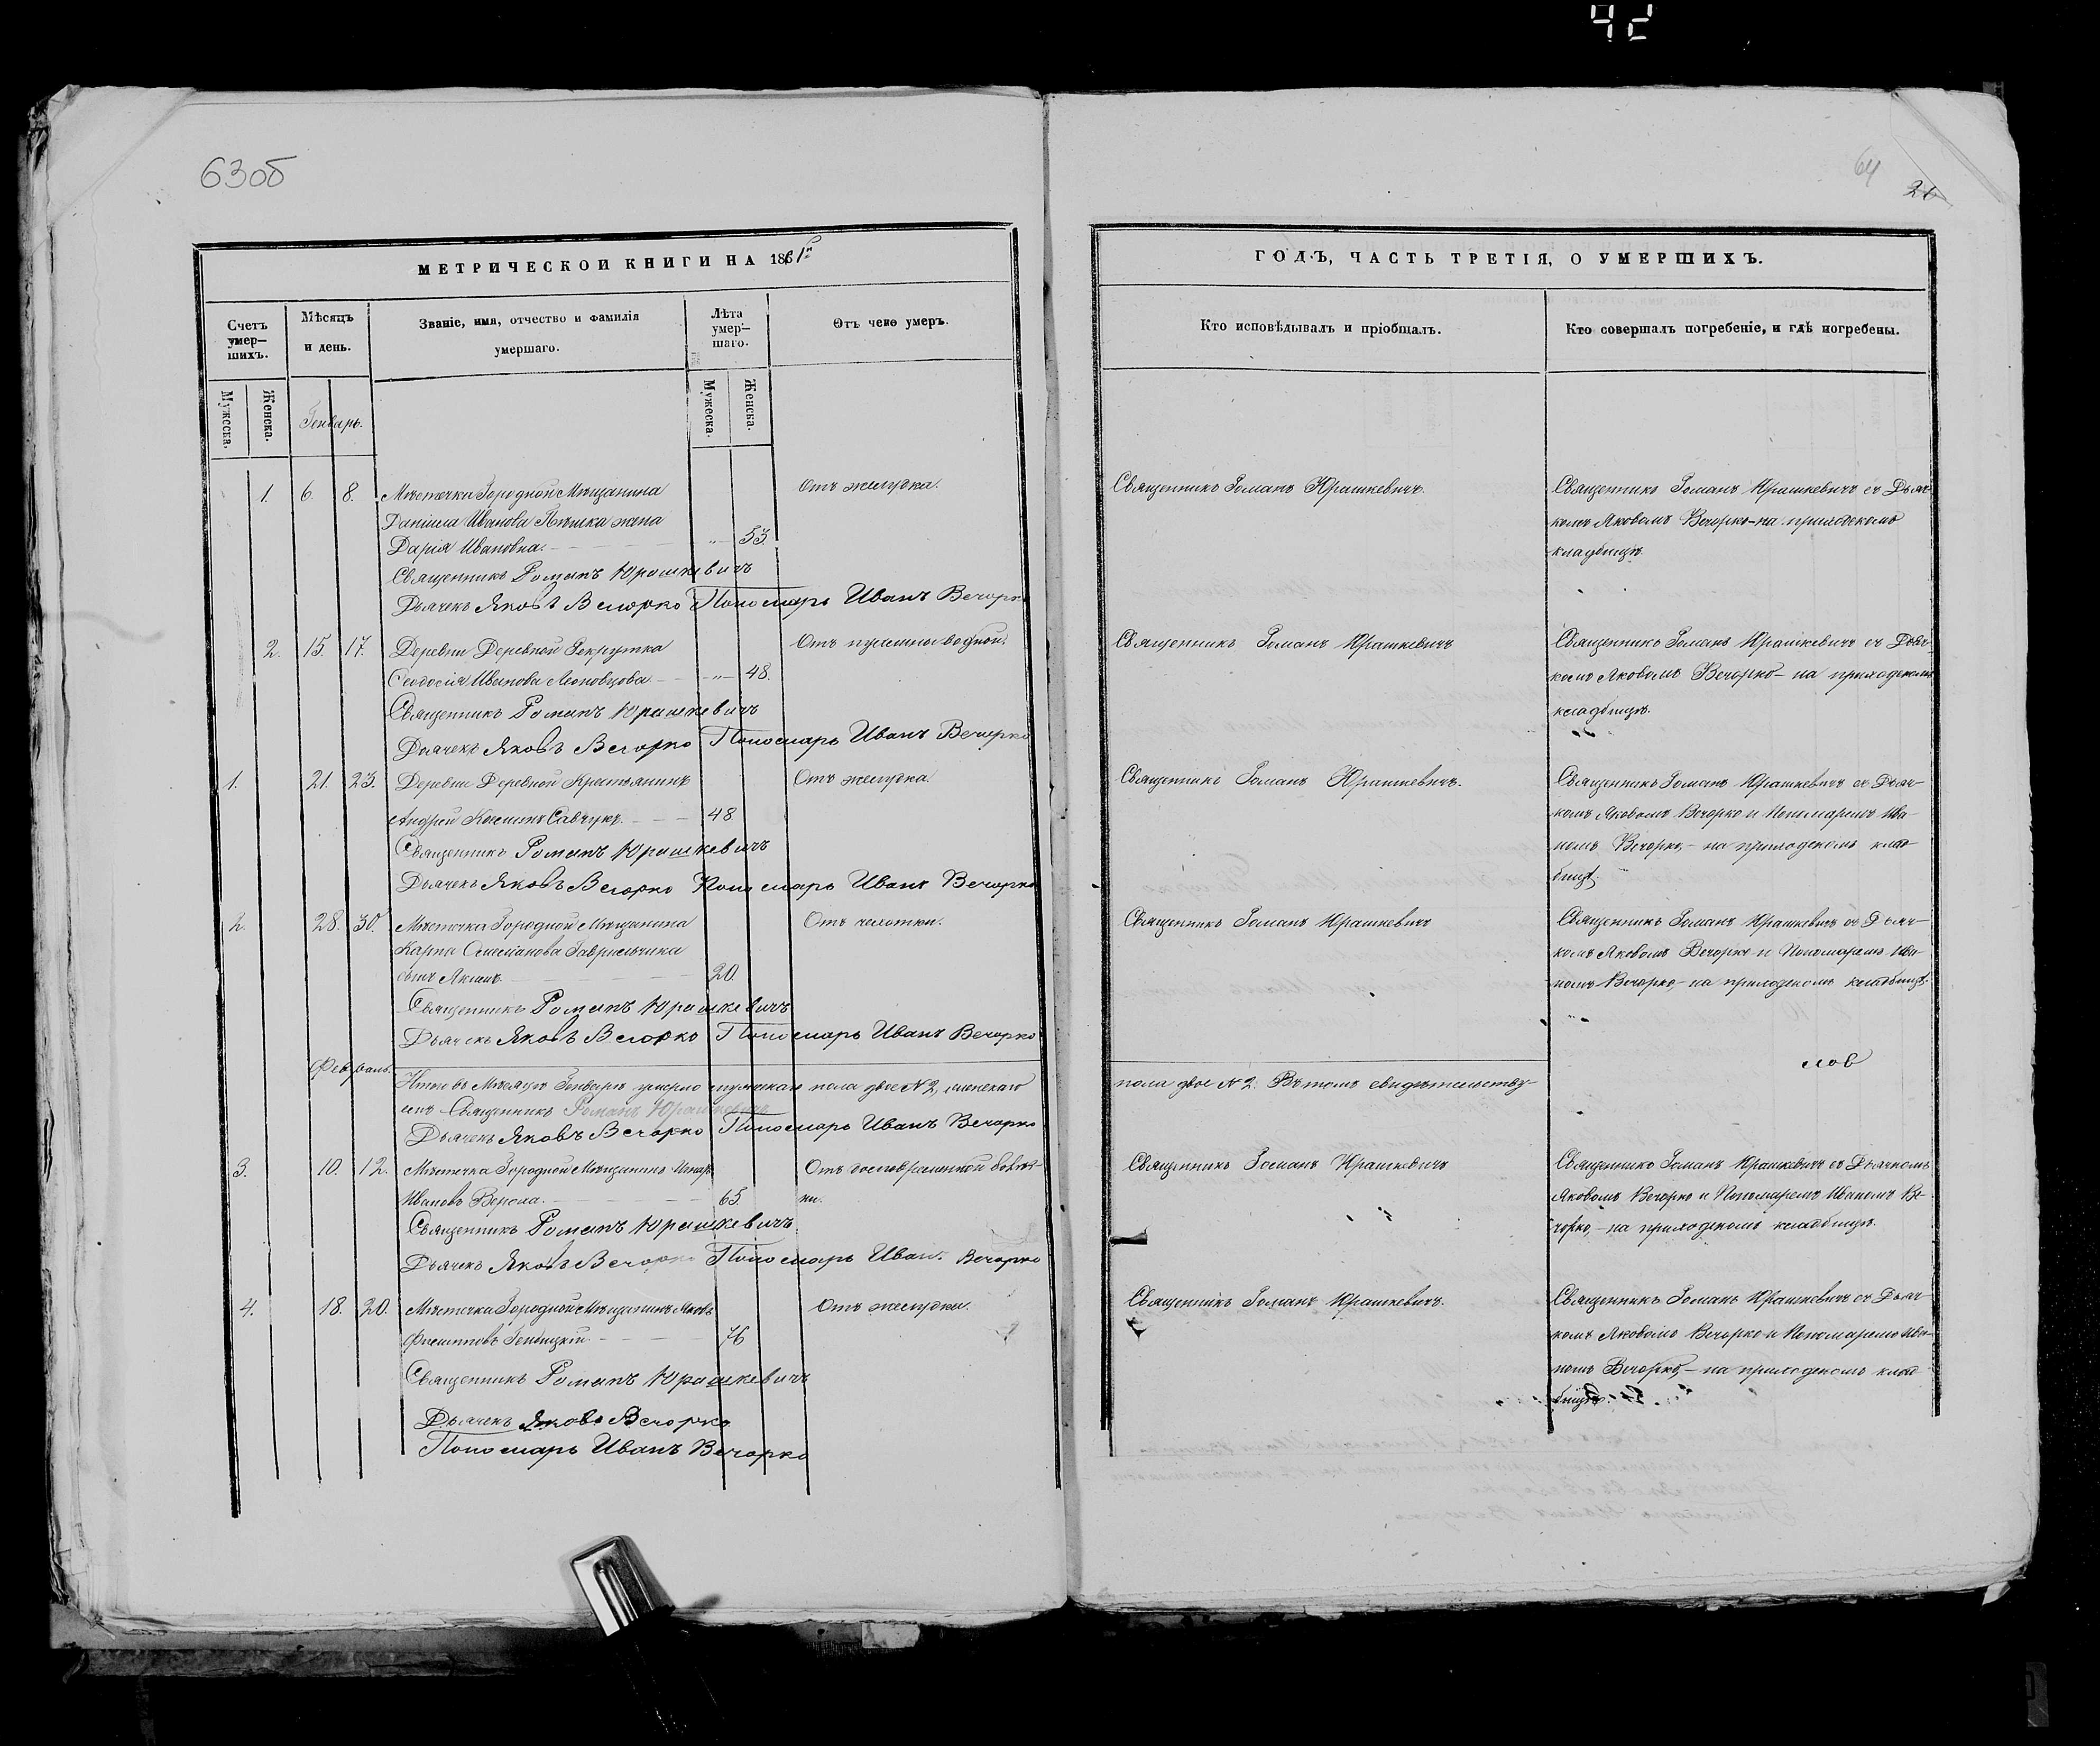 42
63об
64
26
МЕТРИЧЕСКОИ КНИГИ НА 1861й
Счетъ умер-шихъ.
Мѣсяцъ и день.
Званіе, имя, отчество и фамилія умершаго.
Лѣта умер-шаго.
Отъ чего умеръ.
Мужеска.
Женска.
Генварь.
Мужеска.
Женска.
1. 6. 8. Мѣстечка Городной Мѣщанина
Отъ желудка.
Даніила Иванова жена
Дарія Ивановна. 53.
Священникъ Романъ Юрашкевичъ
Дьячекъ Яковъ Вечорко Пономарь Иванъ Вечорко
2. 15. 17. Деревни Деревной Рекрутка
Отъ
Ѳеодосія Иванова 48.
Священникъ Романъ Юрашкевичъ
Дьячекъ Яковъ Вечорко Пономарь Иванъ Вечорко
1. 21. 23. Деревни Деревной Крестьянинъ
Отъ желудка.
Андрей Савчукъ. 48
Священникъ Романъ Юрашкевичъ
Дьячекъ Яковъ Вечорко Пономарь Иванъ Вечорко
2. 28. 30. Мѣстечка Городной Мѣщанина
Отъ чахотки.
Карпа Гаврильчика
сынъ Якимъ. 20.
Священникъ Романъ Юрашкевичъ
Дьячекъ Яковъ Вечорко Пономарь Иванъ Вечорко
Февраль.
Итого въ Мѣсяцѣ Генварѣ умерло мужескаго пола двое № 2, женскаго
емъ Священникъ Романъ Юрашкевичъ
Дьячекъ Яковъ Вечорко Пономарь Иванъ Вечорко
3. 10. 12. Мѣстечка Городной Мѣщанинъ
Отъ
Ивановъ 65.
Священникъ Романъ Юрашкевичъ
Дьячекъ Яковъ Вечорко Пономарь Иван. Вечорко
4. 18. 20. Мѣстечка Городной Мѣщанинъ Яковъ
Отъ желудка.
Филиповъ 76
Священникъ Романъ Юрашкевичъ
Дьячекъ Яковъ Вечорко
Пономарь Иванъ Вечорко
ГОДЪ, ЧАСТЬ ТРЕТІЯ, О УМЕРШИХЪ.
Кто исповѣдывалъ и пріобщалъ.
Кто совершалъ погребеніе, и гдѣ погребены.
Священникъ Романъ Юрашкевичъ.
Священникъ Романъ Юрашкевичъ съ Дьяч-
комъ Яковомъ Вечорко-на приходскомъ
кладбищѣ.
Священникъ Романъ Юрашкевичъ
Священникъ Романъ Юрашкевичъ съ Дьяч-
комъ Яковомъ Вечорко- на приходскомъ
кладбищѣ.
Священникъ Романъ Юрашкевичъ.
Священникъ Романъ Юрашкевичъ съ Дьяч-
комъ Яковомъ Вечорко и Пономаремъ Ива-
номъ Вечорко,- на приходскомъ клад-
бищѣ.
Священникъ Романъ Юрашкевичъ
Священникъ Романъ Юрашкевичъ съ Дьяч-
комъ Яковомъ Вечорко и Пономаремъ Ива-
номъ Вечорко,- на приходскомъ кладбищѣ.
пола двое № 2. Въ томъ свидѣтельству-
Священникъ Романъ Юрашкевичъ
Священникъ Романъ Юрашкевичъ съ Дьячкомъ
Яковомъ Вечорко и Пономаремъ Иваномъ Ве-
чорко,- на приходскомъ кладбищѣ.
Священникъ Романъ Юрашкевичъ.
Священникъ Романъ Юрашкевичъ съ Дьяч-
комъ Яковомъ Вечорко и Пономаремъ Ива-
номъ Вечорко,- на приходскомъ клад-
бищѣ.